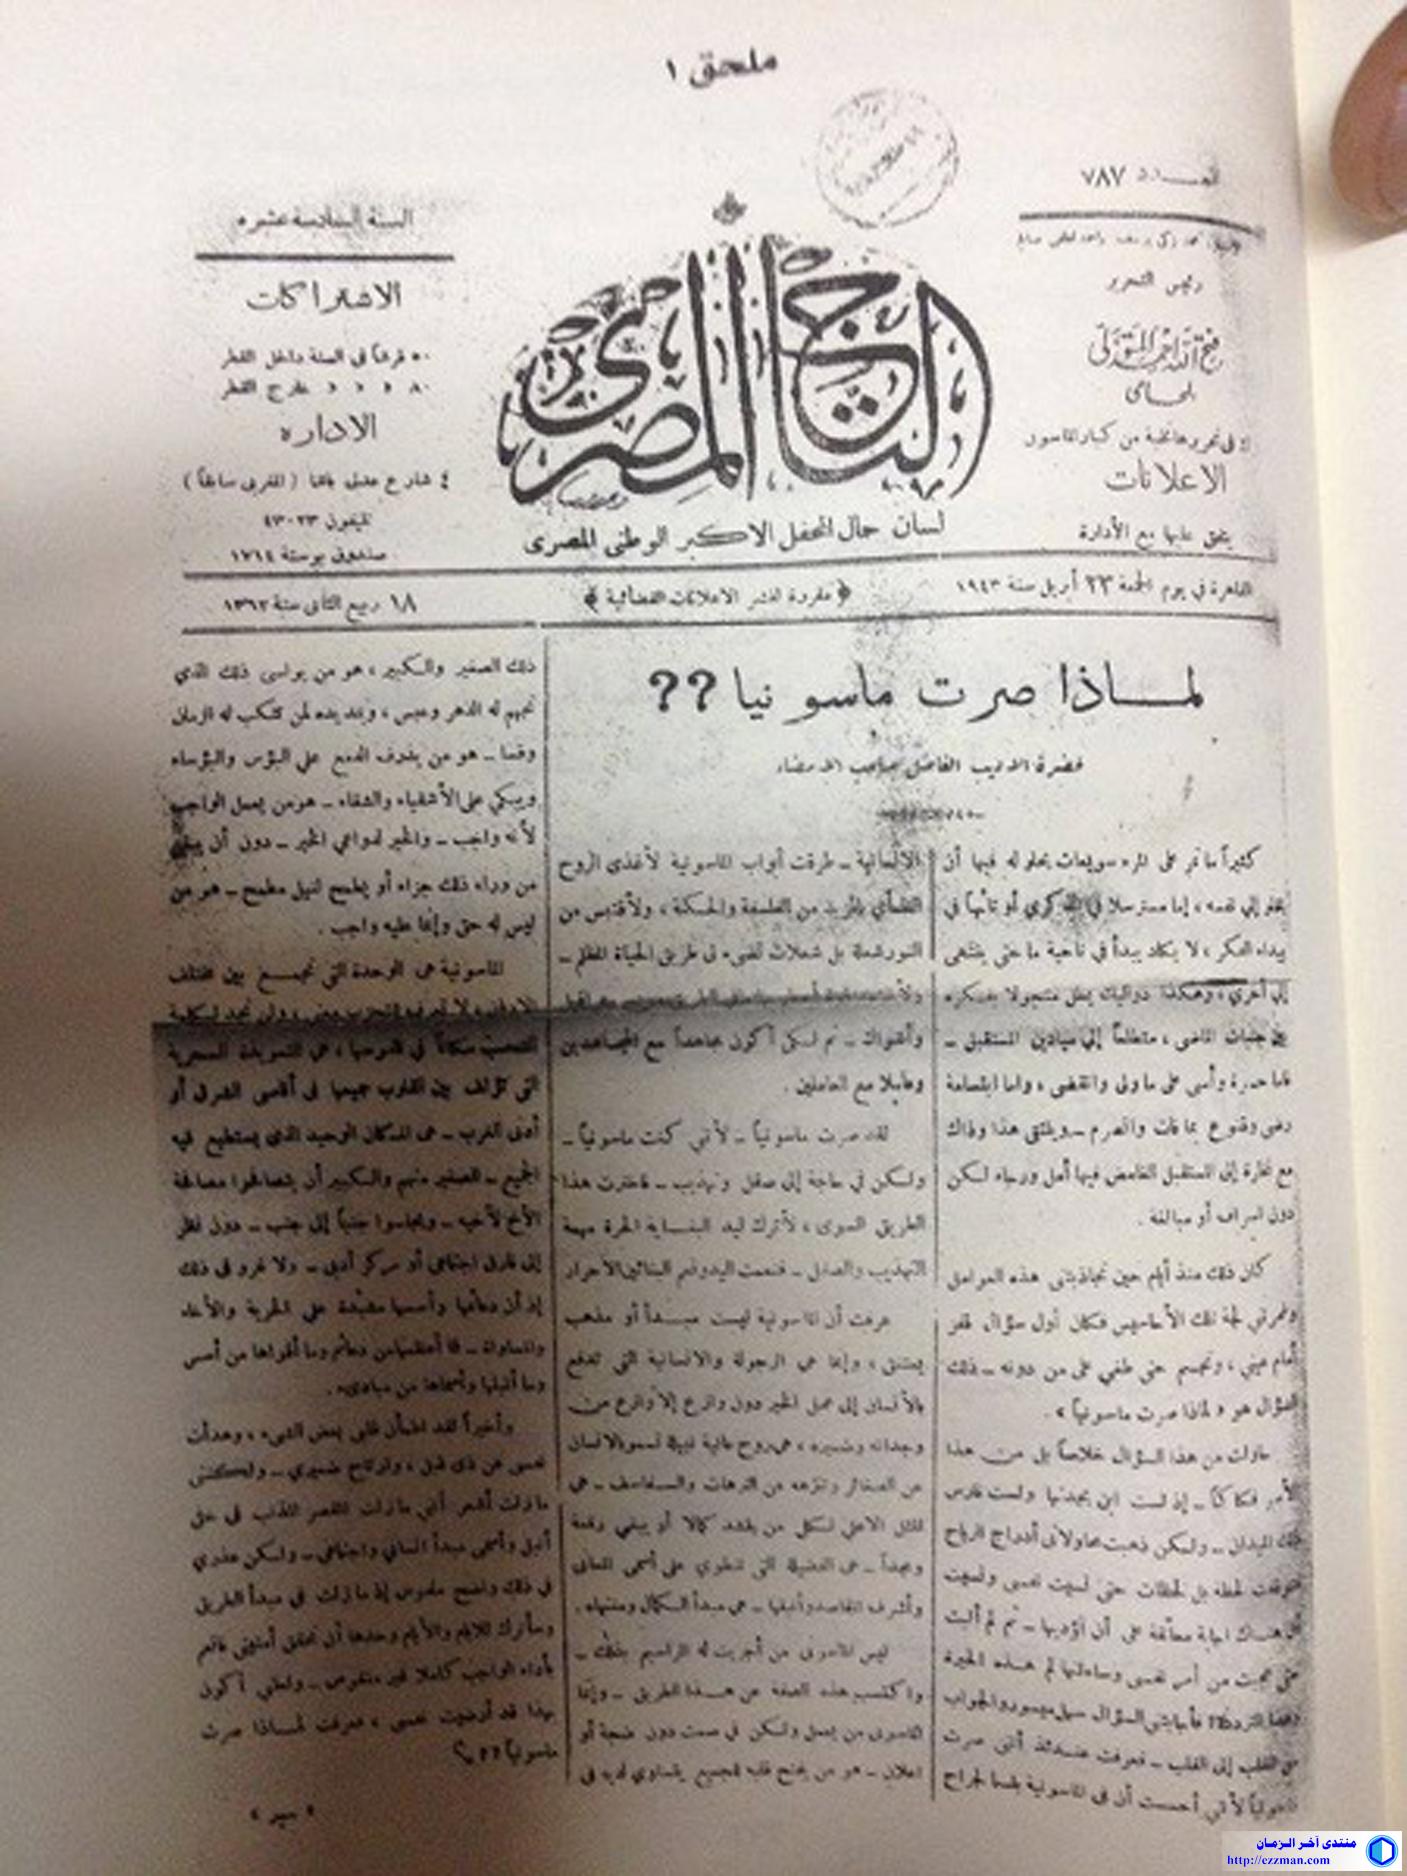 ملحق ١
العدد ٧٨٧
السنة السادسة عشرة
رئيس التحرير
الاعلانات
يتفق عليها مع الأدارة
التاج المصرى
لسان حال المحفل الاكبر الوطنى المصرى
الاشتراكات
٥٠ قرشاً فى السنة داخل القطر
٨٠ » » » خارج القطر
الادارة
٤ شارع عدلى باشا ( المغربى سابقاً )
تليفون ٤٣٠٢٣
صندوق بوستة ١٧١٤
القاهرة في يوم الجمعة ٢٣ أبريل سنة ١٩٤٣
﴿ مقررة لنشر الاعلانات القضائية ﴾
١٨ ربيع الثانى سنة ١٣٦٢
لمــاذا صرت ماسونيا ؟؟
لحضرة الاديب الفاضل صاحب الامضاء
كثيراً ما تمر على المرء سويعات يحلو له فيها أن
يخلو إلى نفسه ، إما مسترسلا في الذكرى أو تائهاً في
بيداء الفكر ، لا يكاد يبدأ في ناحية ما حتى ينتهى
إلى أخرى ، وهكذا دواليك يظل متجولا بفكره
بين جنبات الماضى ، متطلعاً إلى ميادين المستقبل ـ
فاما حسرة وأسى على ما ولى وانقضى ، واما ابتسامة
رضى وقنوع بما فات وانصرم ـ ويلتقى هذا وذاك
مع نظرة إلى المستقبل الغامض فيها أمل ورجاء لكن
دون اسراف أو مبالغة .
كان ذلك منذ أيام حين تجاذبتنى هذه العوامل
وغمرتني لجة تلك الأحاسيس فكان أول سؤال قفز
أمام عيني ، وتجسم حتى طغى على من دونه ـ ذلك
السؤال هو « لماذا صرت ماسونياً » .
حاولت من هذا السؤال خلاصاً بل من هذا
الأسر فكاكاً ـ إذ لست ابن بجدتها ولست فارس
ذلك الميدان ـ ولكن ذهبت محاولاتى أدراج الرياح
الانسانية ـ طرقت أبواب الماسونية لأغذى الروح
الظمأى بالمزيد من الفلسفة والحكمة ، ولأقتبس من
النور شعلة بل شعلات تضىء لى طريق الحياة المظلم ـ
وأشواك ـ ثم لكى أكون مجاهداً مع المجاهدين
وعاملا مع العاملين .
لقد صرت ماسونياً ـ لأني كنت ماسونياً ـ
ولكن في حاجة إلى صقل وتهذيب ـ فاخترت هذا
الطريق السوى ، لأترك ليد البناية الحرة مهمة
التهذيب والصقل ـ فنعمت اليد ونعم البنائين الأحرار
عرفت أن الماسونية ليست مبدأ أو مذهب
يعتنق ، وإنما هي الرجولة والانسانية التى تدفع
بالأنسان إلى عمل الخير دون وازع إلا وازع من
وجدانه وضميره ، هى روح عالية نبيلة تسمو بالانسان
عن الصغائر وتنزهه من الترهات والسفاسف ـ هى
المثل الاعلى لكل من ينشد كمالا أو يبغى رفعة
ومجداً ـ هى الفضيلة التى تنطوى على أسمى المعانى
وأشرف المقاصد وأنبلها ـ هى مبدأ الكمال ومنتهاه .
ليس الماسونى من أجريت له المراسيم بذلك ـ
واكتسب هذه الصفة عن هذا الطريق ـ وإنما
الماسونى من يعمل ولكن في صمت دون ضجة أو
اعلان ـ هو من يفتح قلبه للجميع يتساوى لديه فى
ذلك الصغير والكبير ، هو من يواسى ذلك الذي
تجهم له الدهر وعبس ، ويمد يده لمن تنكب له الزمان
وقسا ـ هو من يذرف الدمع على البؤس والبؤساء
ويبكي على الأشقياء والشقاء ـ هو من يعمل الواجب
لأنه واجب ـ والخير لدواعي الخير ـ دون أن يبغى
من وراء ذلك جزاء أو يطمح لنيل مطمح ـ هو من
ليس له حق وإنما عليه واجب .
الماسونية هى الوحدة التى تجمع بين مختلف
التعصب مكاناً في نفوسها ، هى التعويذة السحرية
التى تؤلف بين القلوب جميعها فى أقصى الشرق أو
أدنى الغرب ـ هى المكان الوحيد الذى يستطيع فيه
الجميع ـ الصغير منهم والكبير أن يتصافحوا مصافحة
الأخ لأخيه ـ ويجلسوا جنباً إلى جنب ـ دون نظر
إلى فارق اجتماعى أو مركز أدبى ـ ولا غرو فى ذلك
إذ أن دعائمها وأسسها مشيدة على الحرية والأخاء
والمساواة ـ فما أعظمها من دعائم وما أقواها من أسس
وما أنبلها وأسماها من مبادىء .
وأخيراً لقد اطمأن قلبى بعض الشىء ، وهدأت
نفسى عن ذى قبل ، وارتاح ضميري ـ ولكننى
ما زلت أشعر أنى ما زلت المقصر المذنب فى حق
أنبل وأسمى مبدأ انسانى واجتماعى ـ ولكن عذرى
في ذلك واضح ملموس إذ ما زلت فى مبدأ الطريق
وسأترك للايام والأيام وحدها أن تحقق أمنيتى فأقم
بأداء الواجب كاملا غير منقوص ـ ولعلى أكون
بهذا قد أرضيت نفسى ، وعرفت لمــاذا صرت
ماسونياً ؟؟
منتدى آخر الزمان
http://ezzman.com